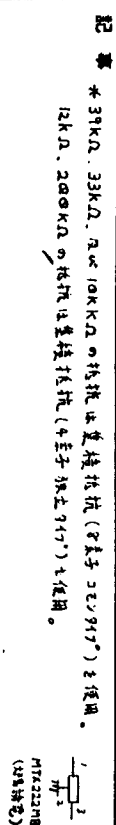 記事
* 39kΩ、33kΩ、及び10kKΩの抵抗は集積抵抗(8素子コモンタイプ)を使用。
12kΩ、200kΩの抵抗は集積抵抗(4素子独立タイプ)を使用。
1
3
2
MTA222MB